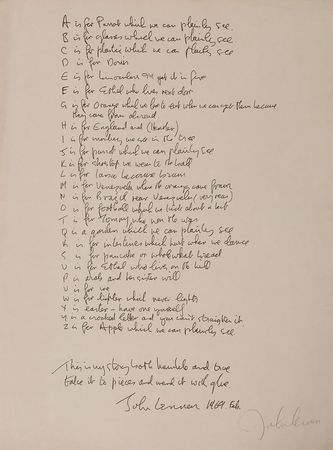 A is for Parrot which we can plainly see.
B is for glasses which we can plainly see
C is for plastic which we can plainly see
D is for Doris
E is for binoculars I'll get it in five
F is for Ethel who lives next door
G is for Orange which we love to eat when we can get them because
they come from abroad
H is for England and (Heather)
I is for monkey we see in the tree
J is for parrot which we can plainly see
K is for shoetop we wear to the ball
L is for Land because brown
M is for Venezuela where the oranges come from
N is for Brazil near Venezuela (very near)
O is for football which we kick about a bit
T is for Tommy who won the war
Q is a garden which we can plainly see
R is for intestines which hurt when we dance
S is for pancake or whole wheat bread
U is for Ethel who lives on the hill
P is arab and her sister will
V is for me
W is for lighter which never lights
X is easter - have one yourself
Y is a crooked letter and you can't straighten it
Z is for Apple which we can plainly see.
This is my story both humble and true
take it to pieces and mend it with glue
John Lennon 1969. Feb.
John Lennon